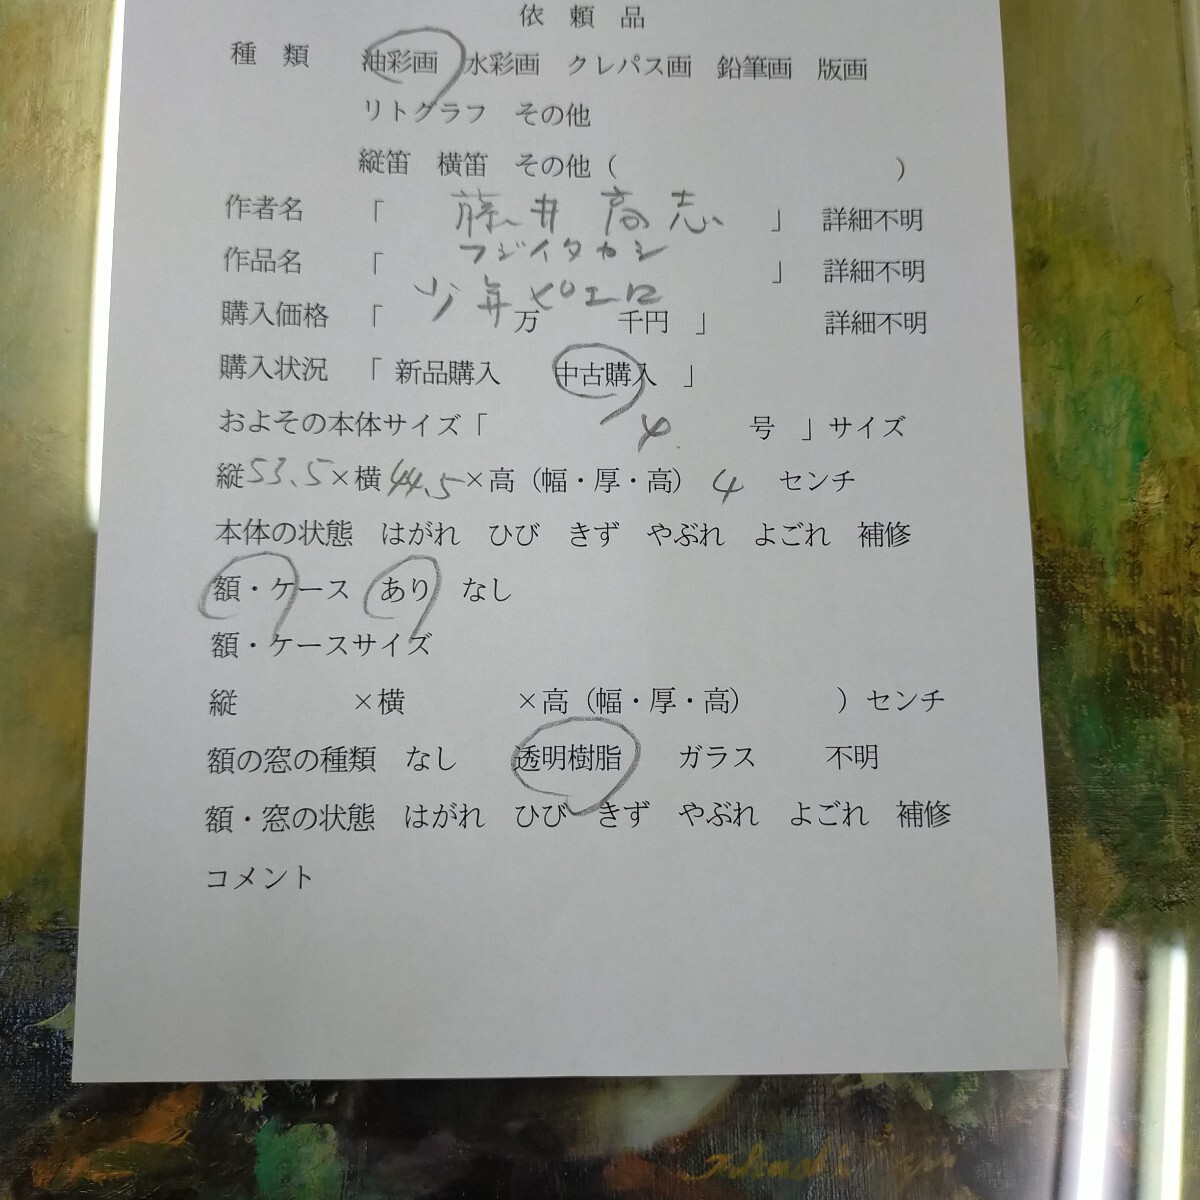 依 頼 品
種 類 油彩画 水彩画 クレパス画 鉛筆画 版画
リトグラフ その他
縦笛 横笛 その他（ ）
作者名 「 藤井 高志 」 詳細不明
フジイタカシ
作品名 「 」 詳細不明
少年ピエロ
購入価格 「 万 千円 」 詳細不明
購入状況 「 新品購入 中古購入 」
およその本体サイズ「 4 号 」サイズ
縦 53.5 ×横 44.5 ×高（幅・厚・高） 4 センチ
本体の状態 はがれ ひび きず やぶれ よごれ 補修
額・ケース あり なし
額・ケースサイズ
縦 ×横 ×高（幅・厚・高） ）センチ
額の窓の種類 なし 透明樹脂 ガラス 不明
額・窓の状態 はがれ ひび きず やぶれ よごれ 補修
コメント
Takashi